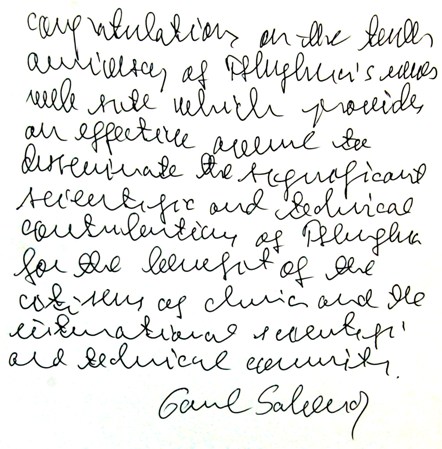 congratulations on the tenth
anniversary of Tsinghua's news
web site which provides
an effective avenue to
disseminate the significant
scientific and technical
contributions of Tsinghua
for the benefit of the
citizens of China and the
international scientific
and technical community.
Gavriel Salvendy